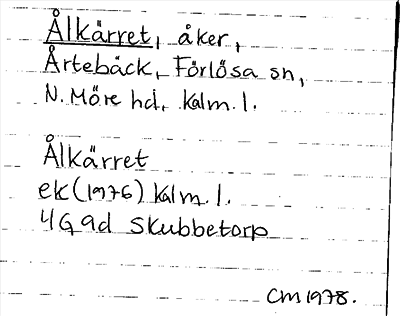 Ålkärret, åker,
Årtebäck, Förlösa sn,
N. Möre hd, Kalm. l.
Ålkärret
ek (1976) Kalm. l.
4G 9d Skubbetorp
CM 1978.